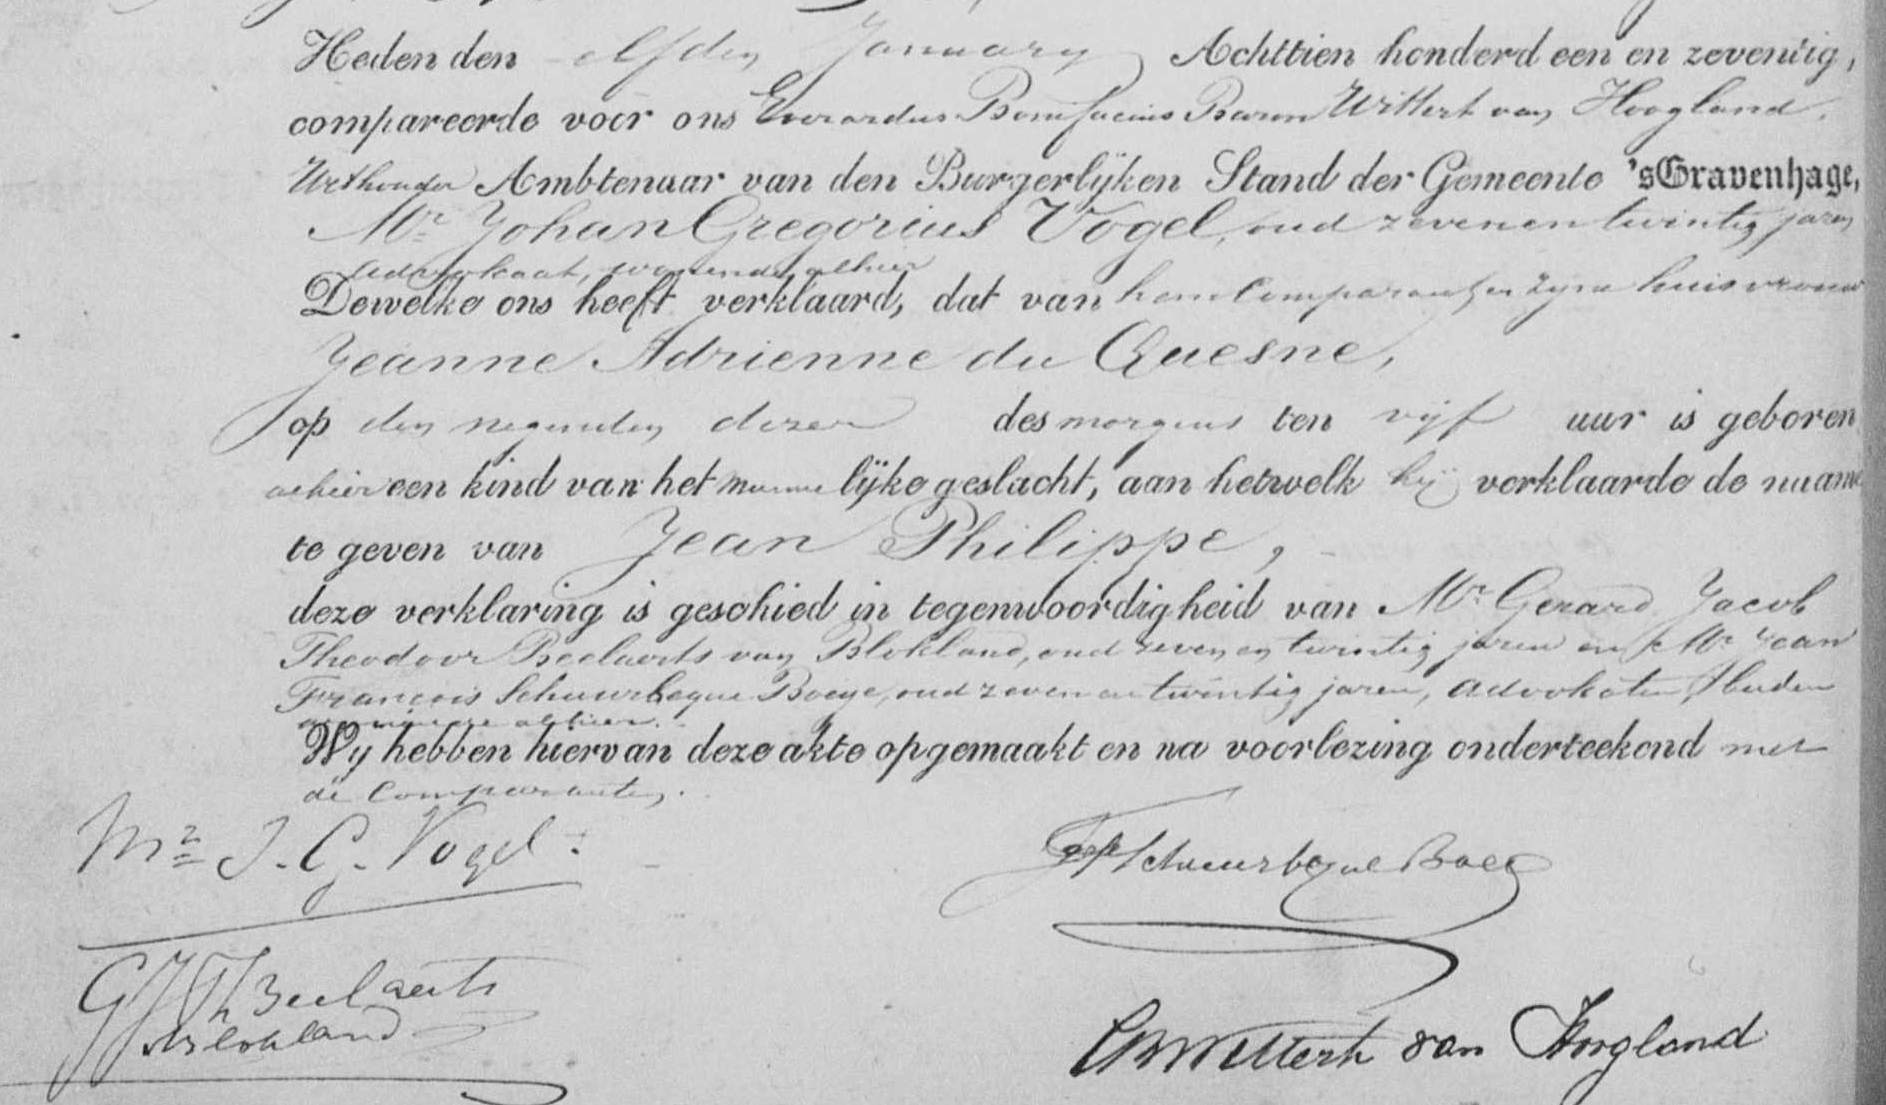 Heden den elfden January Achttien honderd een en zeventig,
compareerde voor ons Everardus Bonifacius Baron Wittert van Hoogland,
Wethouder Ambtenaar van den Burgerlijken Stand der Gemeente 'sGravenhage,
Mr. Johan Gregorius Vogel, oud zeven en twintig jaren
advokaat, wonende alhier
Dewelke ons heeft verklaard, dat van hem Comparant en zijne huisvrouw
Jeanne Adrienne du Quesne,
op den negenden dezer des morgens ten vijf uur is geboren
alhier een kind van het mannelijke geslacht, aan hetwelk hij verklaarde de naame
te geven van Jean Philippe,
deze verklaring is geschied in tegenwoordigheid van Mr. Gerard Jacob
Theodoor Beelaerts van Blokland, oud zeven en twintig jaren en Mr. Jean
François Schuurbeque Boeye, oud zeven en twintig jaren, advokaten, beiden
alhier.
Wij hebben hiervan deze akte opgemaakt en na voorlezing onderteekend met
de Comparanten.
Mr. J. G. Vogel.
Schuurbeque Boeye
GJTh Beelaerts
v Blokland
EB Wittert van Hoogland